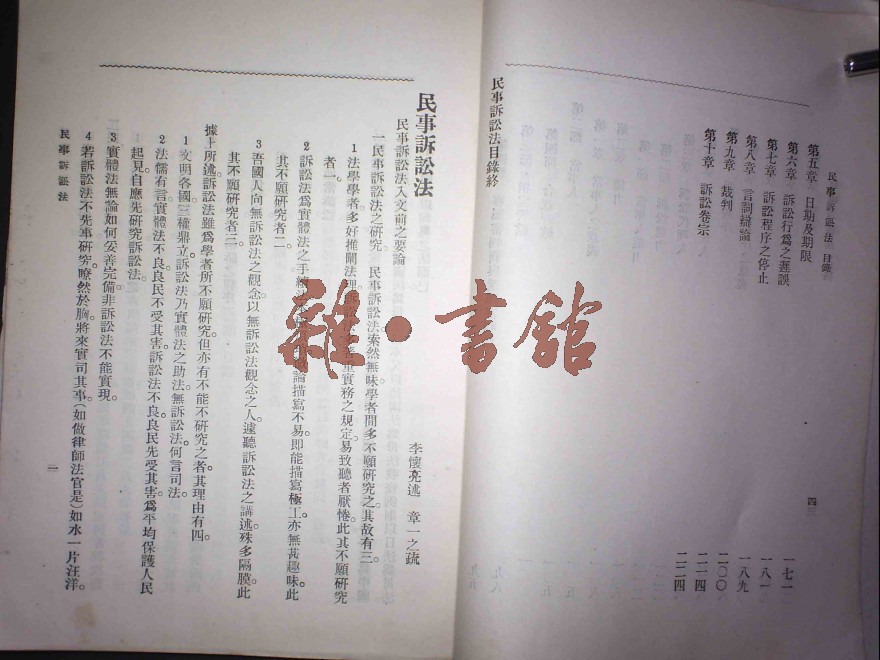 民事訴訟法 目錄
四
第五章 日期及期限 一七一
第六章 訴訟行為之遲誤 一八一
第七章 訴訟程序之停止 一八九
第八章 言詞辯論 二〇〇
第九章 裁判 二一四
第十章 訴訟卷宗 二二四
民事訴訟法目錄終
民事訴訟法
民事訴訟法入文前之要論
李懷亮述 章一之疏
一民事訴訟法之研究 民事訴訟法索然無味學者間多不願研究之其故有三
1 法學學者多好推闡法理 重實務之規定易致聽者厭惓此其不願研究
者一
2 訴訟法爲實體法之手續 論描寫不易即能描寫極工亦無甚趣味此
其不願研究者二
3 吾國人向無訴訟法之觀念以無訴訟法觀念之人遽聽訴訟法之講述殊多隔膜此
其不願研究者三
據上所述訴訟法雖爲學者所不願研究但亦有不能不研究之者其理由有四
1 文明各國三權鼎立訴訟法乃實體法之助法無訴訟法何言司法
2 法儒有言實體法不良良民不受其害訴訟法不良良民先受其害爲平均保護人民
起見自應先研究訴訟法
3 實體法無論如何妥善完備非訴訟法不能實現
4 若訴訟法不先事研究瞭然於胸將來實司其事(如做律師法官是)如水一片汪洋
民事訴訟法
一
雜·書館